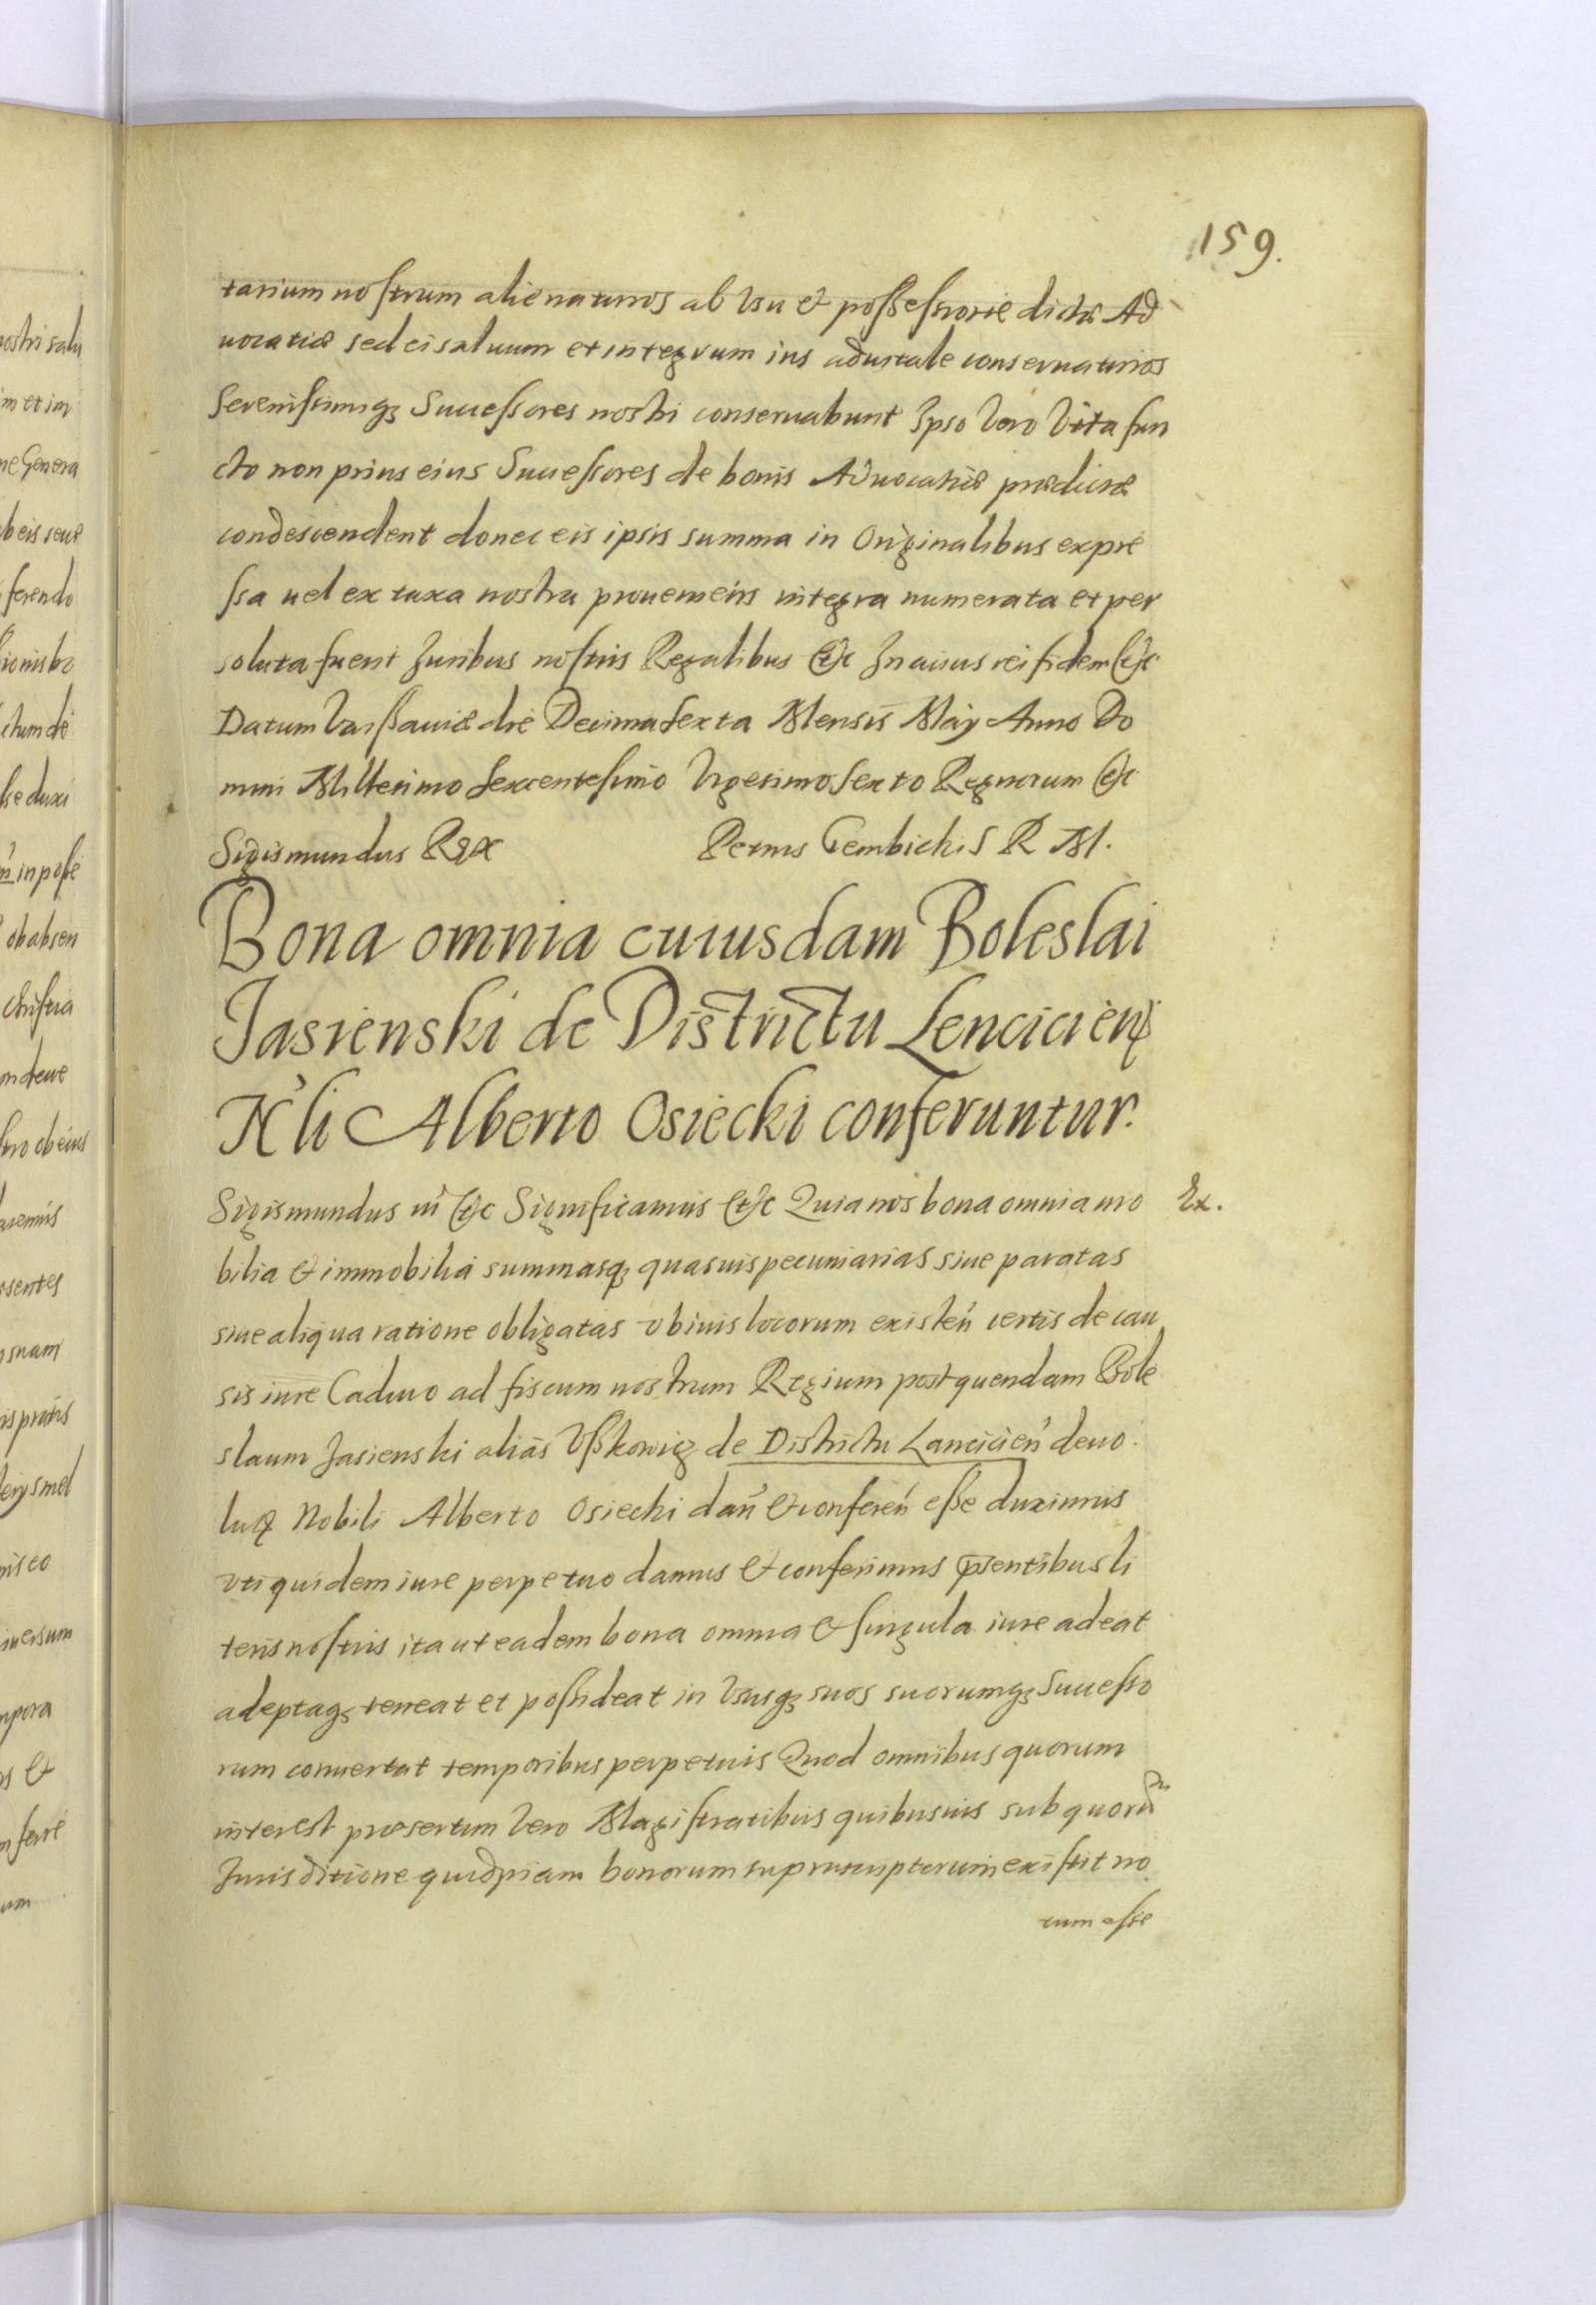 159.
tarium nostrum alienaturos ab Vsu & possessione dictæ Ad
uocatiæ sed ei saluum et integrum ius aduitale conseruaturos
Serenissimiq3 Successores nostri conseruabunt Ipso Vero Vita fun
cto non prius eius Successores de bonis Aduocatiæ prædictæ
condescendent donec eis ipsis summa in Originalibus expre
ssa uel ex taxa nostra proueniens integra numerata et per
soluta fuerit Iuribus nostris Regalibus &c In cuius rei fidem &c
Datum Varssauiæ die Decima Sexta Mensis Maÿ Anno Do
mini Millesimo Sexcentesimo Vigesimo Sexto Regnorum &c
Sigismundus Rex Petrus Gembicki S R M.
Bona omnia cuiusdam Boleslai
Jasienski de Districtu Lencicien
N'li Alberto Osiecki conferuntur.
Sigismundus iii &c Significamus &c Quia nos bona omnia mo
Ex.
bilia & immobilia summasq3 quasuis pecuniarias siue paratas
siue aliqua ratione obligatas vbiuis locorum existen' certis de cau
sis iure Caduco ad fiscum nostrum Regium post quendam Bole
slaum Jasienski aliàs Vsskowig de Districtu Lancicien' deuo
luq Nobili Alberto Osiecki dan' & conferen' esse duximus
vti quidem iure perpetuo damus & conferimus p̄sentibus li
teris nostris ita ut eadem bona omnia & singula iure adeat
adeptaq3 teneat et possideat in Vsusq3 suos suorumq3 Successo
rum conuertat temporibus perpetuis Quod omnibus quorum
interest præsertim Vero Magistratibus quibusuis sub quorū
Jurisditione quidpiam bonorum suprascriptorum existit no
tum esse